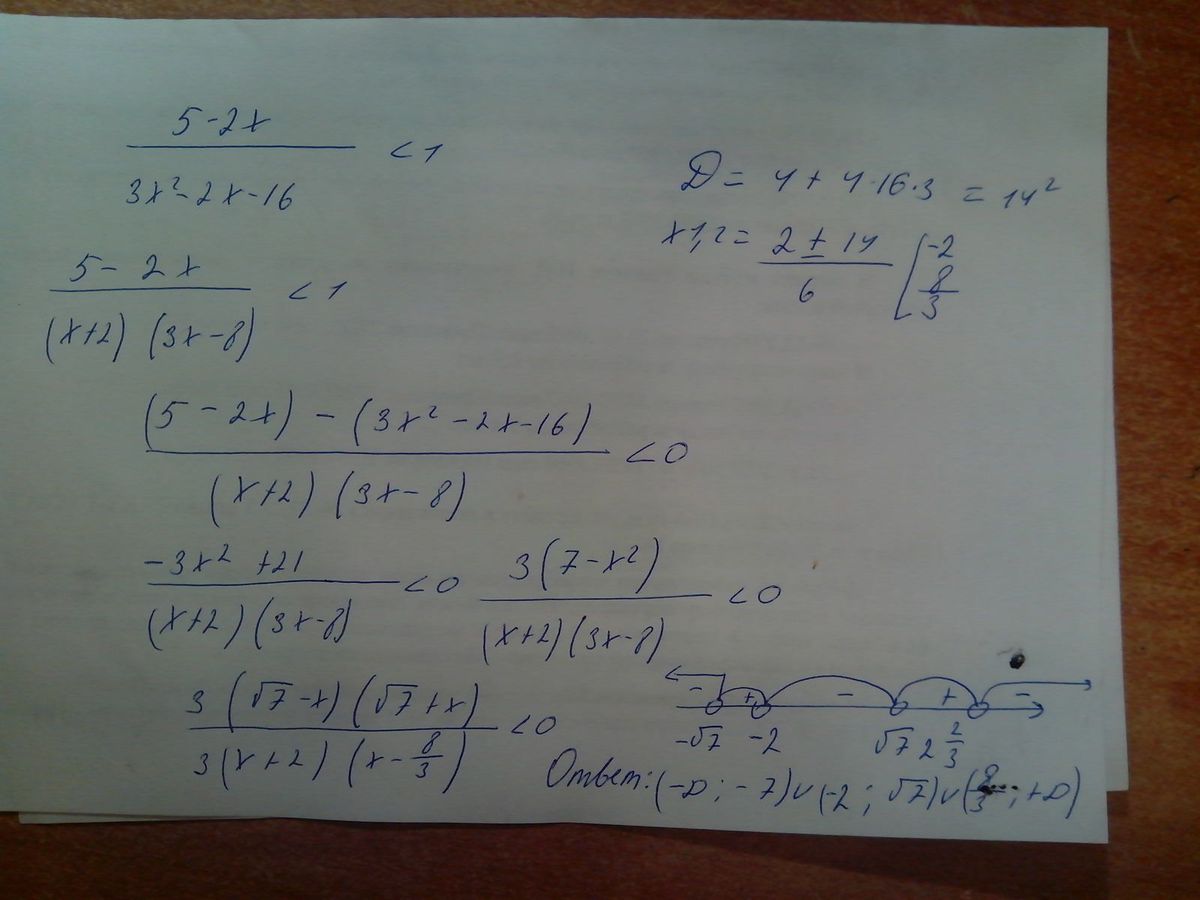 5-2x / 3x²-2x-16 < 1
D = 4 + 4·16·3 = 14²
x1,2 = 2 ± 14 / 6 [ -2 8/3
5 - 2x / (x+2) (3x-8) < 1
(5 - 2x) - (3x² - 2x - 16) / (x+2) (3x - 8) < 0
-3x² + 21 / (x+2) (3x-8) < 0 3(7-x²) / (x+2)(3x-8) < 0
3(√7-x)(√7+x) / 3(x+2)(x-8/3) < 0
- + - + -
-√7 -2 √7 2 2/3
Ответ: (-∞; -7)∪(-2; √7)∪(8/3; +∞)